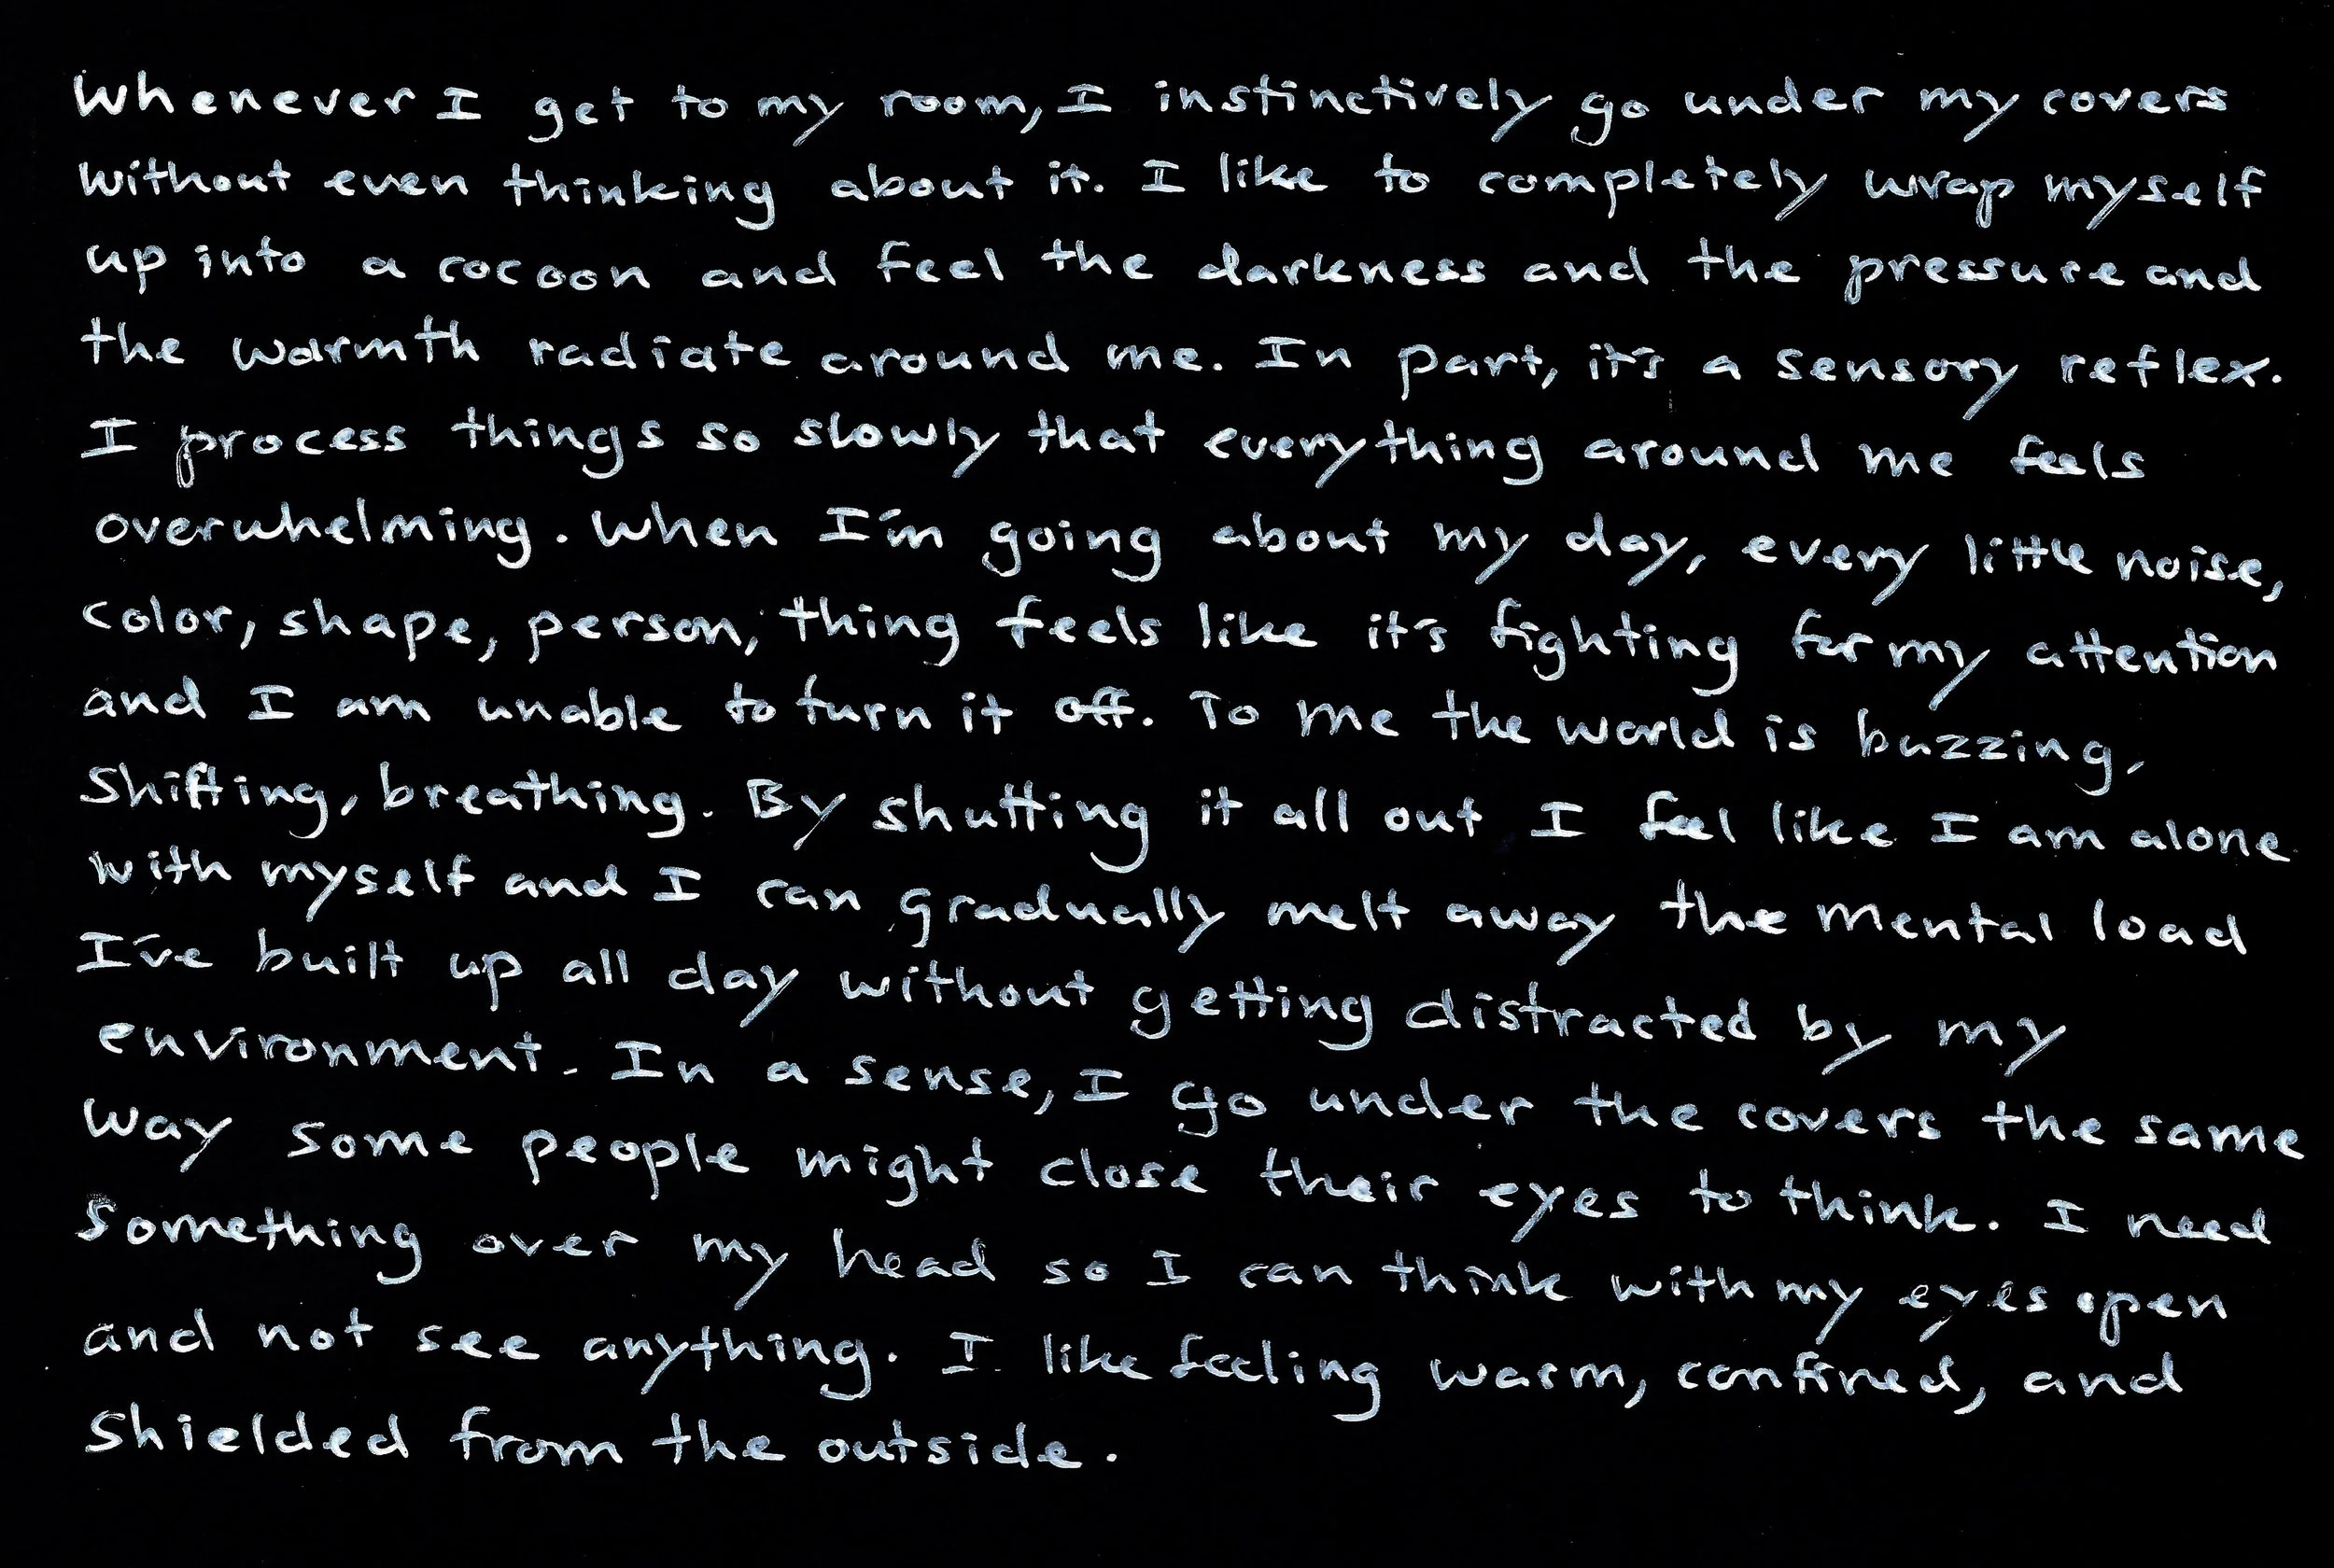 Whenever I get to my room, I instinctively go under my covers
without even thinking about it. I like to completely wrap myself
up into a cocoon and feel the darkness and the pressure and
the warmth radiate around me. In part, it's a sensory reflex.
I process things so slowly that everything around me feels
overwhelming. When I'm going about my day, every little noise,
color, shape, person, thing feels like it's fighting for my attention
and I am unable to turn it off. To me the world is buzzing,
Shifting, breathing. By shutting it all out I feel like I am alone
with myself and I can gradually melt away the mental load
I've built up all day without getting distracted by my
environment. In a sense, I go under the covers the same
way some people might close their eyes to think. I need
something over my head so I can think with my eyes open
and not see anything. I like feeling warm, confined, and
Shielded from the outside.